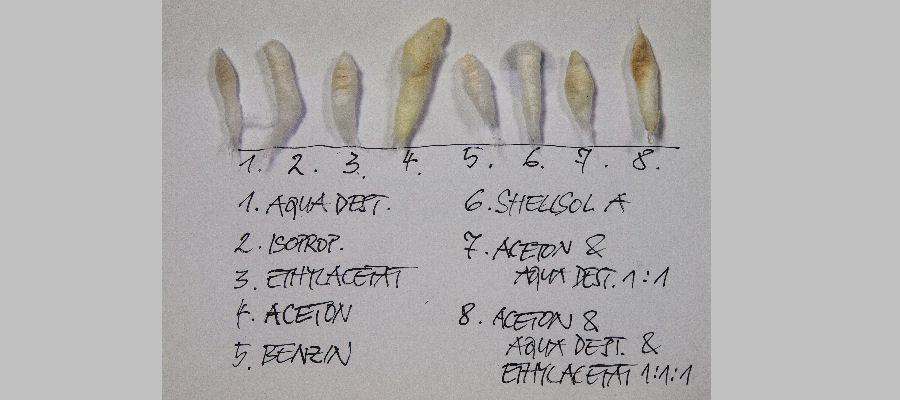 1. 2. 3. 4. 5. 6. 7. 8.
1. AQUA DEST.
2. ISOPROP.
3. ETHYLACETAT
4. ACETON
5. BENZIN
6. SHELLSOL A
7. ACETON &
AQUA DEST. 1:1
8. ACETON &
AQUA DEST. &
ETHYLACETAT 1:1:1